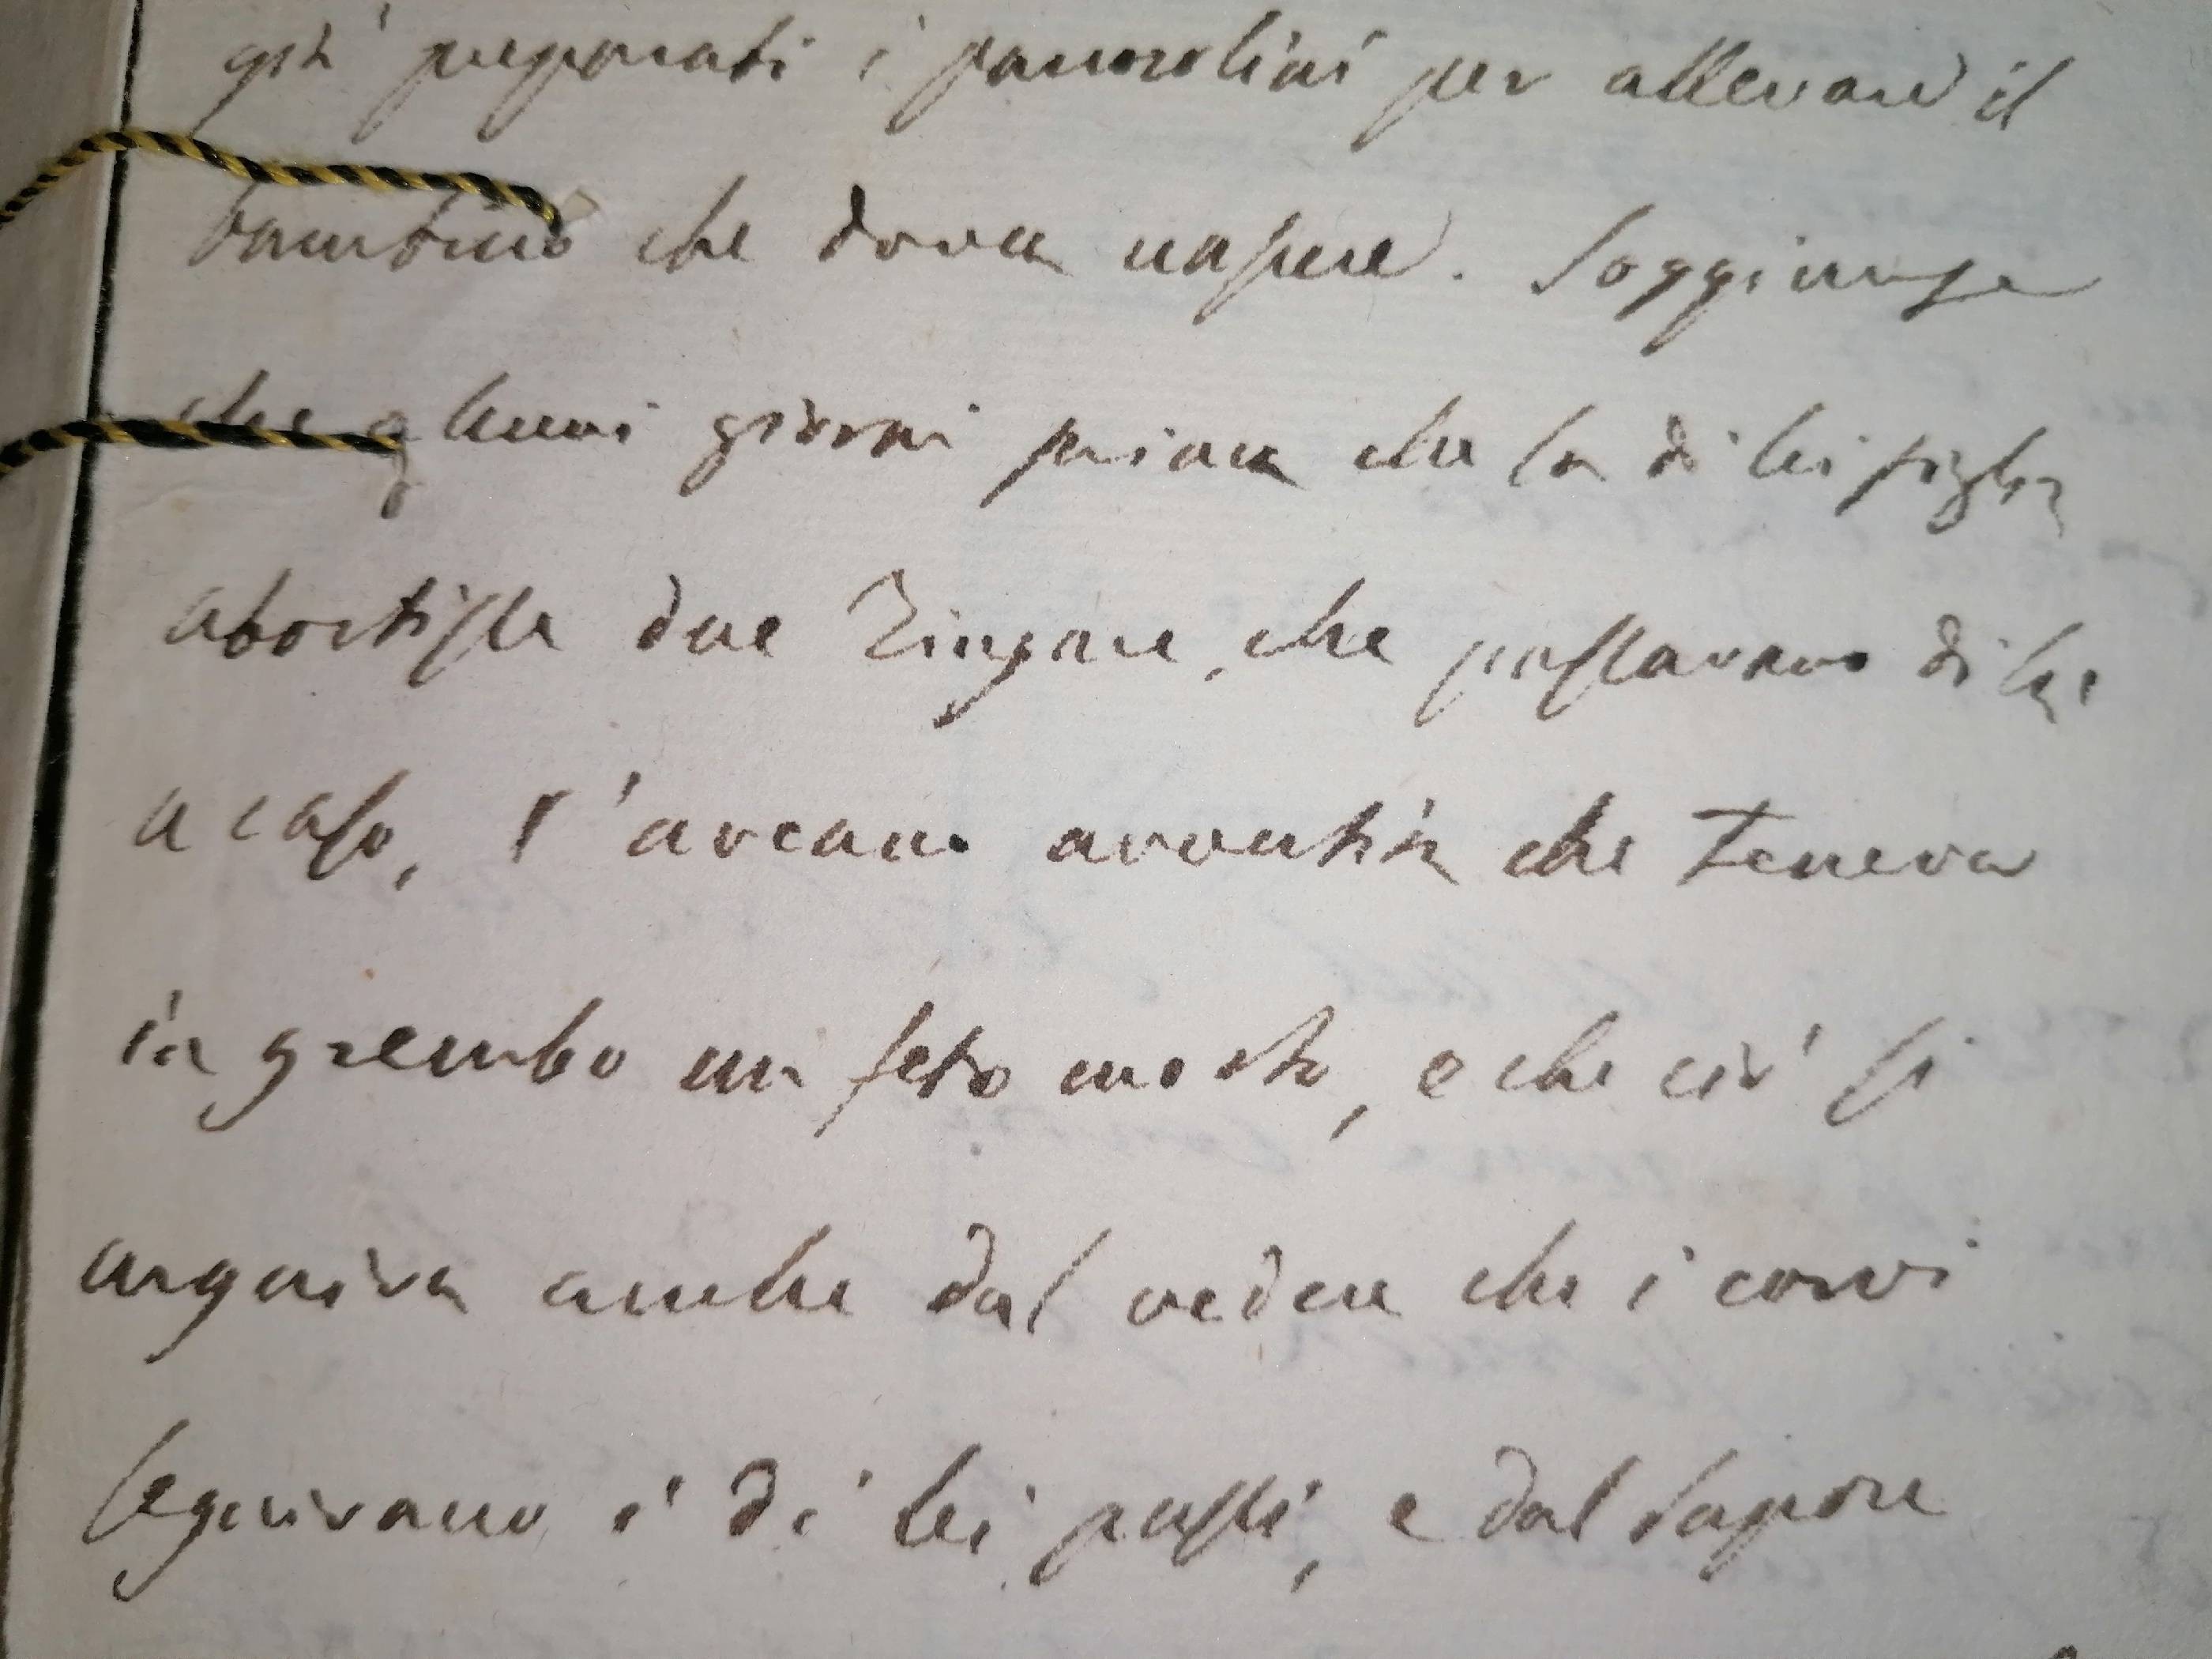 già preparati i pannolini per allevare il
bambino che dovea nascere. Soggiunse
che alcuni giorni prima che la di lei figlia
abortisse due Zingare, che passavano di là
a caso, l'aveano avvertita che teneva
in grembo un feto morto, e che ciò si
arguiva anche dal vedere che i corvi
seguivano i di lei passi, e dal sapore